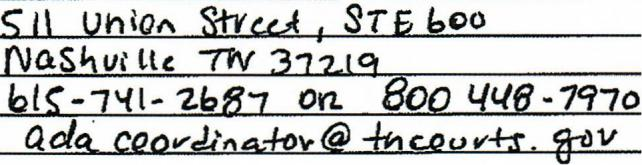 511 Union Street, STE 600
Nashville TN 37219
615-741-2687 or 800 448-7970
ada coordinator@tncourts.gov